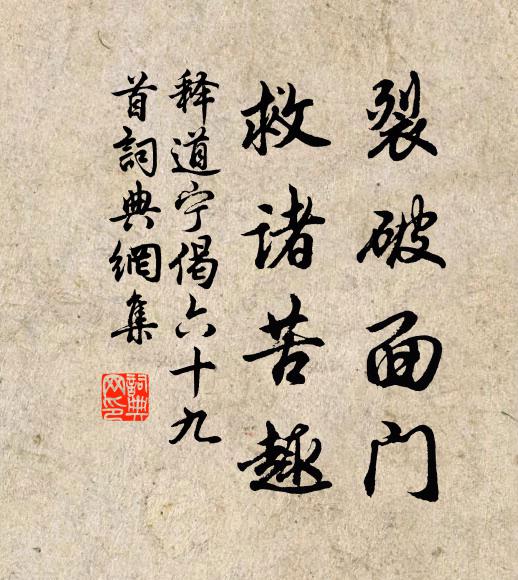 裂破面门
救诸苦趣
释道宁偈六十九
首詞典網集
詞典
网印